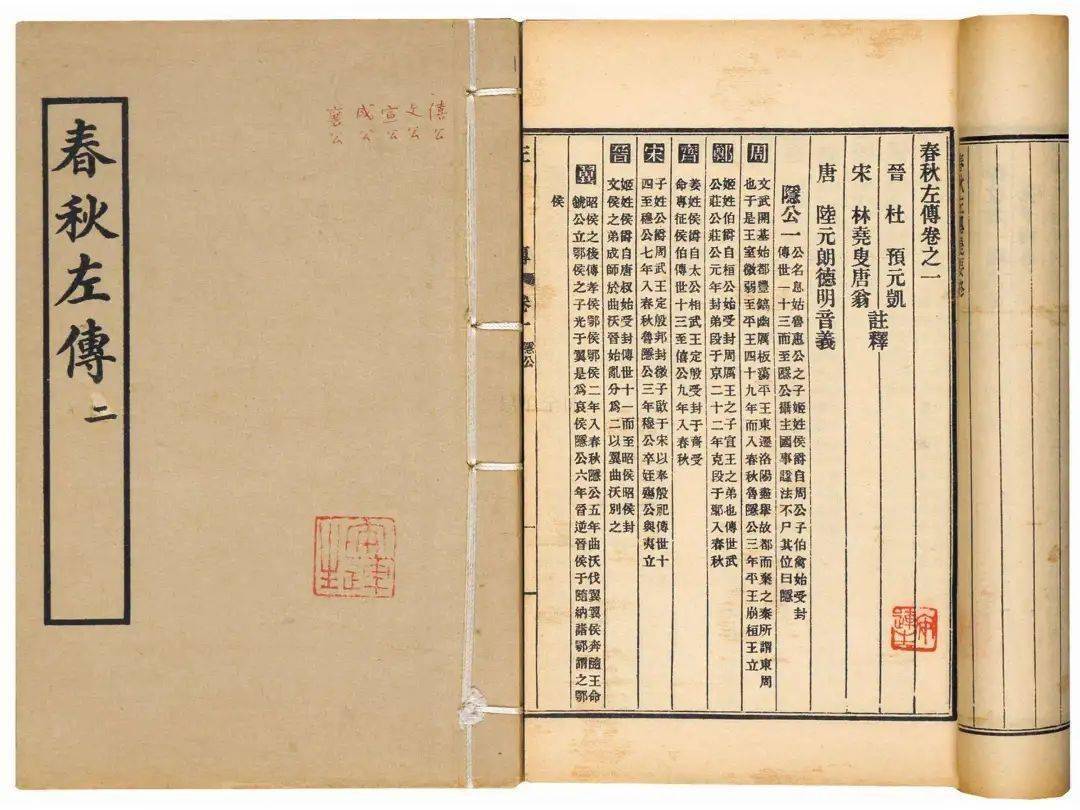 春秋左傳
二
僖公
文公
宣公
成公
襄公
春秋左傳卷之一
晉 杜 預元凱
宋 林堯叟唐翁
註釋
唐 陸元朗德明音義
隱公一
公名息姑魯惠公之子姬姓侯爵自周公子伯禽始受封
傳世一十三而至隱公攝主國事諡法不尸其位曰隱
周
文武開基始都豐鎬幽厲板蕩平王東遷洛陽盡舉故都而棄之秦所謂東周
也于是王室微弱至平王四十九年而入春秋魯隱公三年平王崩桓王立
鄭
姬姓伯爵自桓公始受封周厲王之子宣王之弟也傳世武
公莊公莊公元年封弟段于京二十二年克段于鄢入春秋
齊
姜姓侯爵自太公相武王定殷受封于齊受
命專征侯伯傳世十三至僖公九年入春秋
宋
子姓公爵周武王定殷邦封微子啟于宋以奉殷祀傳世十
四至穆公七年入春秋魯隱公三年穆公卒姪殤公與夷立
晉
姬姓侯爵自唐叔始受封傳世十一而至昭侯昭侯封
文侯之弟成師於曲沃晉始亂分爲二以翼曲沃別之
翼
昭侯之後傳孝侯鄂侯鄂侯二年入春秋隱公五年曲沃伐翼翼侯奔隨王命
虢公立鄂侯之子光于翼是爲哀侯隱公六年晉逆晉侯于隨納諸鄂謂之鄂
侯
傳
卷一
隱公